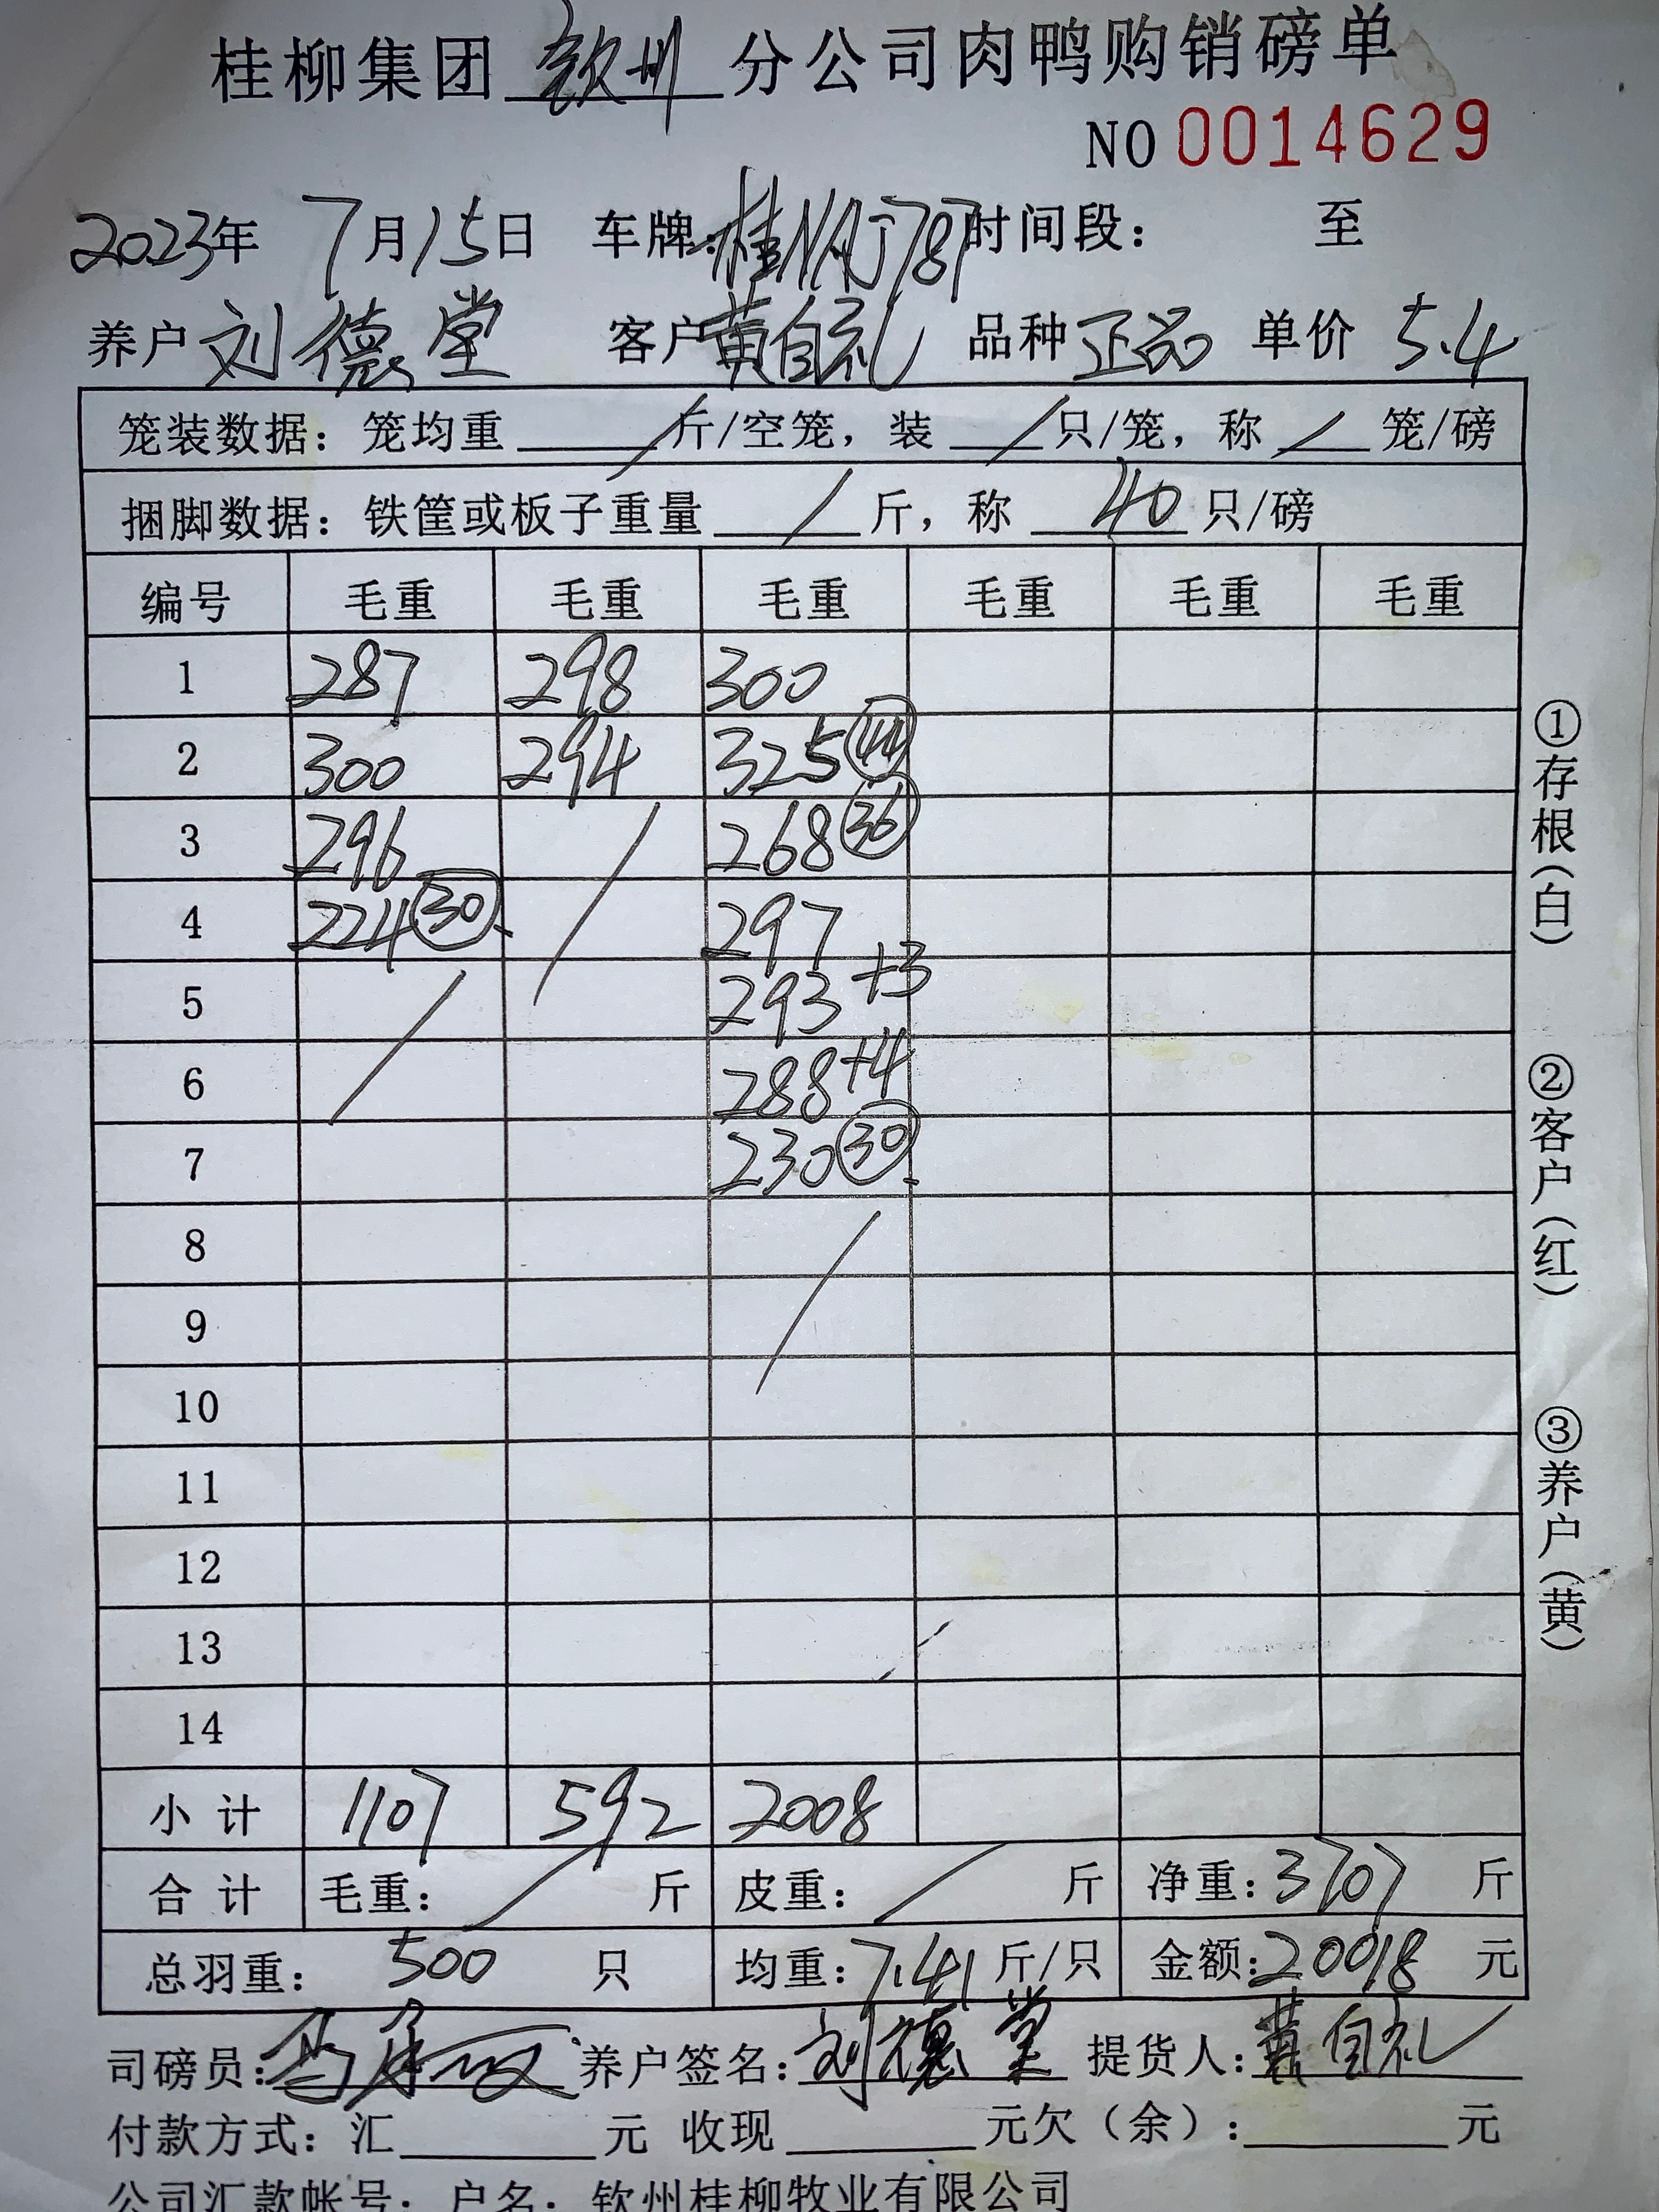 桂柳集团 钦州 分公司肉鸭购销磅单
NO 0014629
2023年 7月15日 车牌:桂NAJ787 时间段: 至
养户 刘德堂 客户 黄自礼 品种 正品 单价 5.4
笼装数据: 笼均重 / 斤/空笼, 装 / 只/笼, 称 / 笼/磅
捆脚数据: 铁筐或板子重量 / 斤, 称 40 只/磅
编号 毛重 毛重 毛重 毛重 毛重 毛重
1 287 298 300
2 300 294 325 44
3 296 / 268 36
4 224 30 297
5 / 293 +3
6 288 +4
7 230 30
8 /
9
10
11
12
13
14
小计 1107 592 2008
合计 毛重: / 斤 皮重: / 斤 净重: 3707 斤
总羽重: 500 只 均重: 7.41 斤/只 金额: 20018 元
司磅员: 养户签名: 刘德堂 提货人: 黄自礼
付款方式: 汇 元 收现 元欠(余): 元
公司汇款帐号: 户名: 钦州桂柳牧业有限公司
①存根(白)
②客户(红)
③养户(黄)